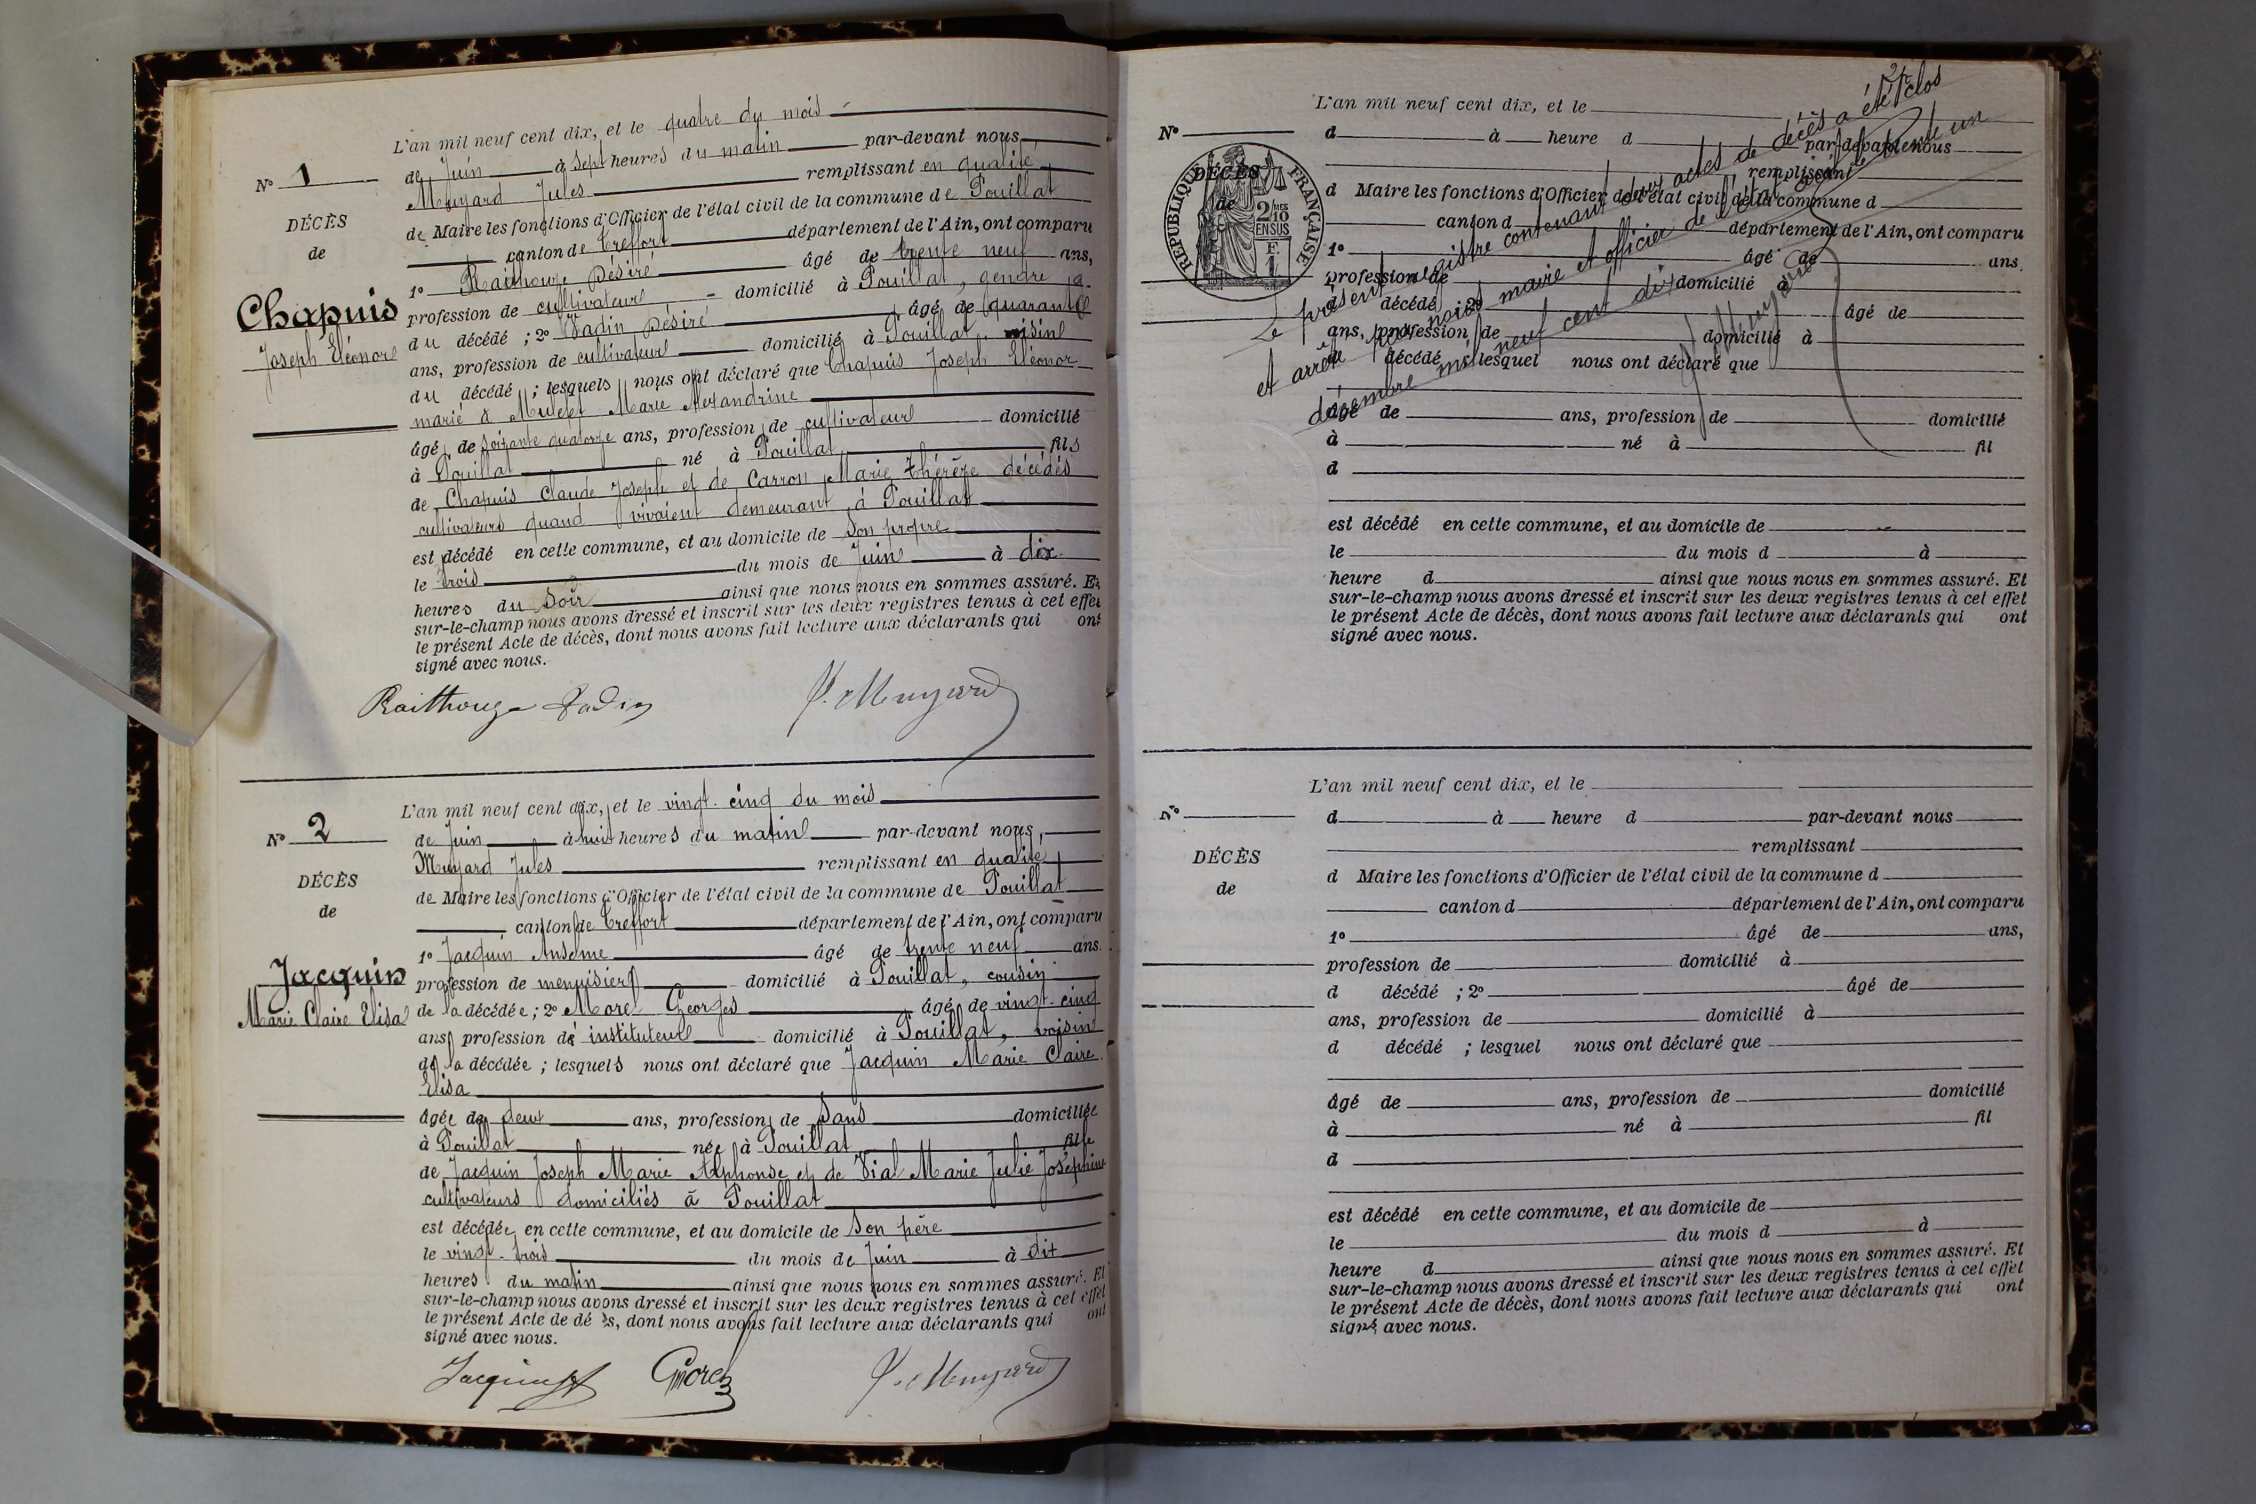 L'an mil neuf cent dix, et le quatre du mois
N° 1
de Juin à sept heures du matin par-devant nous
Muyard Jules remplissant en qualité
DÉCÈS
de
de Maire les fonctions d'Officier de l'état civil de la commune de Pouillat
canton de Treffort département de l'Ain, ont comparu
1° Raithouze Désiré âgé de trente neuf ans,
Chapuis
Joseph Eléonor
profession de cultivateur domicilié à Pouillat, gendre
du décédé ; 2° Vadin Désiré âgé de quarante
ans, profession de cultivateur domicilié à Pouillat, voisin
du décédé ; lesquels nous ont déclaré que Chapuis Joseph Eléonor
marié à Marie Alexandrine
âgé de soixante quatorze ans, profession de cultivateur domicilié
à Pouillat né à Pouillat fils
de Chapuis Claude Joseph et de Carron Marie Thérèze décédés
cultivateurs quand vivaient demeurant à Pouillat
est décédé en cette commune, et au domicile de son propre
le trois du mois de Juin à dix
heures du soir ainsi que nous nous en sommes assuré. Et
sur-le-champ nous avons dressé et inscrit sur les deux registres tenus à cet effet
le présent Acte de décès, dont nous avons fait lecture aux déclarants qui ont
signé avec nous.
Raithouze Vadin J. Muyard
L'an mil neuf cent dix, et le vingt-cinq du mois
N° 2
de Juin à huit heures du matin par-devant nous,
Muyard Jules remplissant en qualité
DÉCÈS
de
de Maire les fonctions d'Officier de l'état civil de la commune de Pouillat
canton de Treffort département de l'Ain, ont comparu
1° Jacquin Anselme âgé de trente neuf ans.
Jacquin
Marie Claire Elisa
profession de menuisier domicilié à Pouillat, cousin
de la décédée ; 2° Morel Georges âgé de vingt-cinq
ans profession de instituteur domicilié à Pouillat, voisin
de la décédée ; lesquels nous ont déclaré que Jacquin Marie Claire
Elisa
âgée de deux ans, profession de sans domiciliée
à Pouillat née à Pouillat fille
de Jacquin Joseph Marie Alphonse et de Vial Marie Julie Joséphine
cultivateurs domiciliés à Pouillat
est décédée en cette commune, et au domicile de son père
le vingt-trois du mois de Juin à dix
heures du matin ainsi que nous nous en sommes assuré. Et
sur-le-champ nous avons dressé et inscrit sur les deux registres tenus à cet effet
le présent Acte de décès, dont nous avons fait lecture aux déclarants qui ont
signé avec nous.
Jacquin Morel J. Muyard
L'an mil neuf cent dix, et le
N°
d à heure d par-devant nous
remplissant
DÉCÈS
de
RÉPUBLIQUE FRANÇAISE
2 MES
10
EN SUS
F
1
d Maire les fonctions d'Officier de l'état civil de la commune d
canton d département de l'Ain, ont comparu
1° âgé de ans.
profession de domicilié à
d décédé ; 2° âgé de
ans, profession de domicilié à
d décédé ; lesquel nous ont déclaré que
âgé de ans, profession de domicilié
à né à fil
d
Le présent registre contenant deux actes de décès a été clos
et arrêté par nous maire et officier de l'état civil le trente un
décembre mil neuf cent dix
J. Muyard
est décédé en cette commune, et au domicile de
le du mois d à
heure d ainsi que nous nous en sommes assuré. Et
sur-le-champ nous avons dressé et inscrit sur les deux registres tenus à cet effet
le présent Acte de décès, dont nous avons fait lecture aux déclarants qui ont
signé avec nous.
L'an mil neuf cent dix, et le
N°
d à heure d par-devant nous
remplissant
DÉCÈS
de
d Maire les fonctions d'Officier de l'état civil de la commune d
canton d département de l'Ain, ont comparu
1° âgé de ans,
profession de domicilié à
d décédé ; 2° âgé de
ans, profession de domicilié à
d décédé ; lesquel nous ont déclaré que
âgé de ans, profession de domicilié
à né à fil
d
est décédé en cette commune, et au domicile de
le du mois d à
heure d ainsi que nous nous en sommes assuré. Et
sur-le-champ nous avons dressé et inscrit sur les deux registres tenus à cet effet
le présent Acte de décès, dont nous avons fait lecture aux déclarants qui ont
signé avec nous.